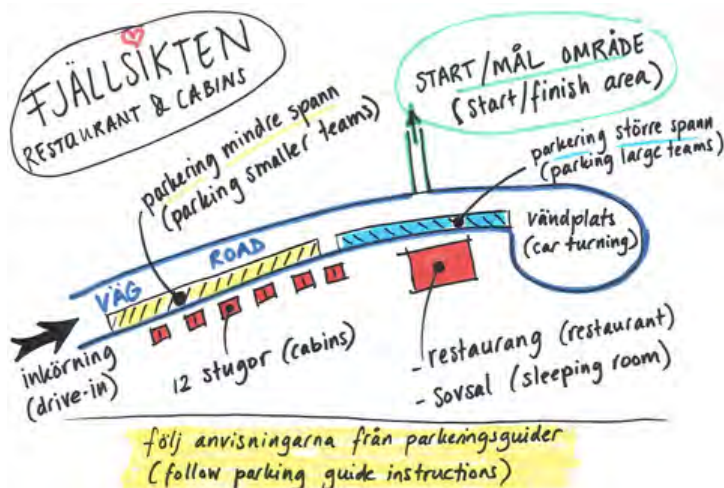 FJÄLLSIKTEN
RESTAURANT & CABINS
START/MÅL OMRÅDE
(start/finish area)
parkering mindre spann
(parking smaller teams)
parkering större spann
(parking large teams)
vändplats
(car turning)
VÄG
ROAD
inkörning
(drive-in)
12 stugor (cabins)
- restaurang (restaurant)
- Sovsal (sleeping room)
följ anvisningarna från parkeringsguider
(follow parking guide instructions)